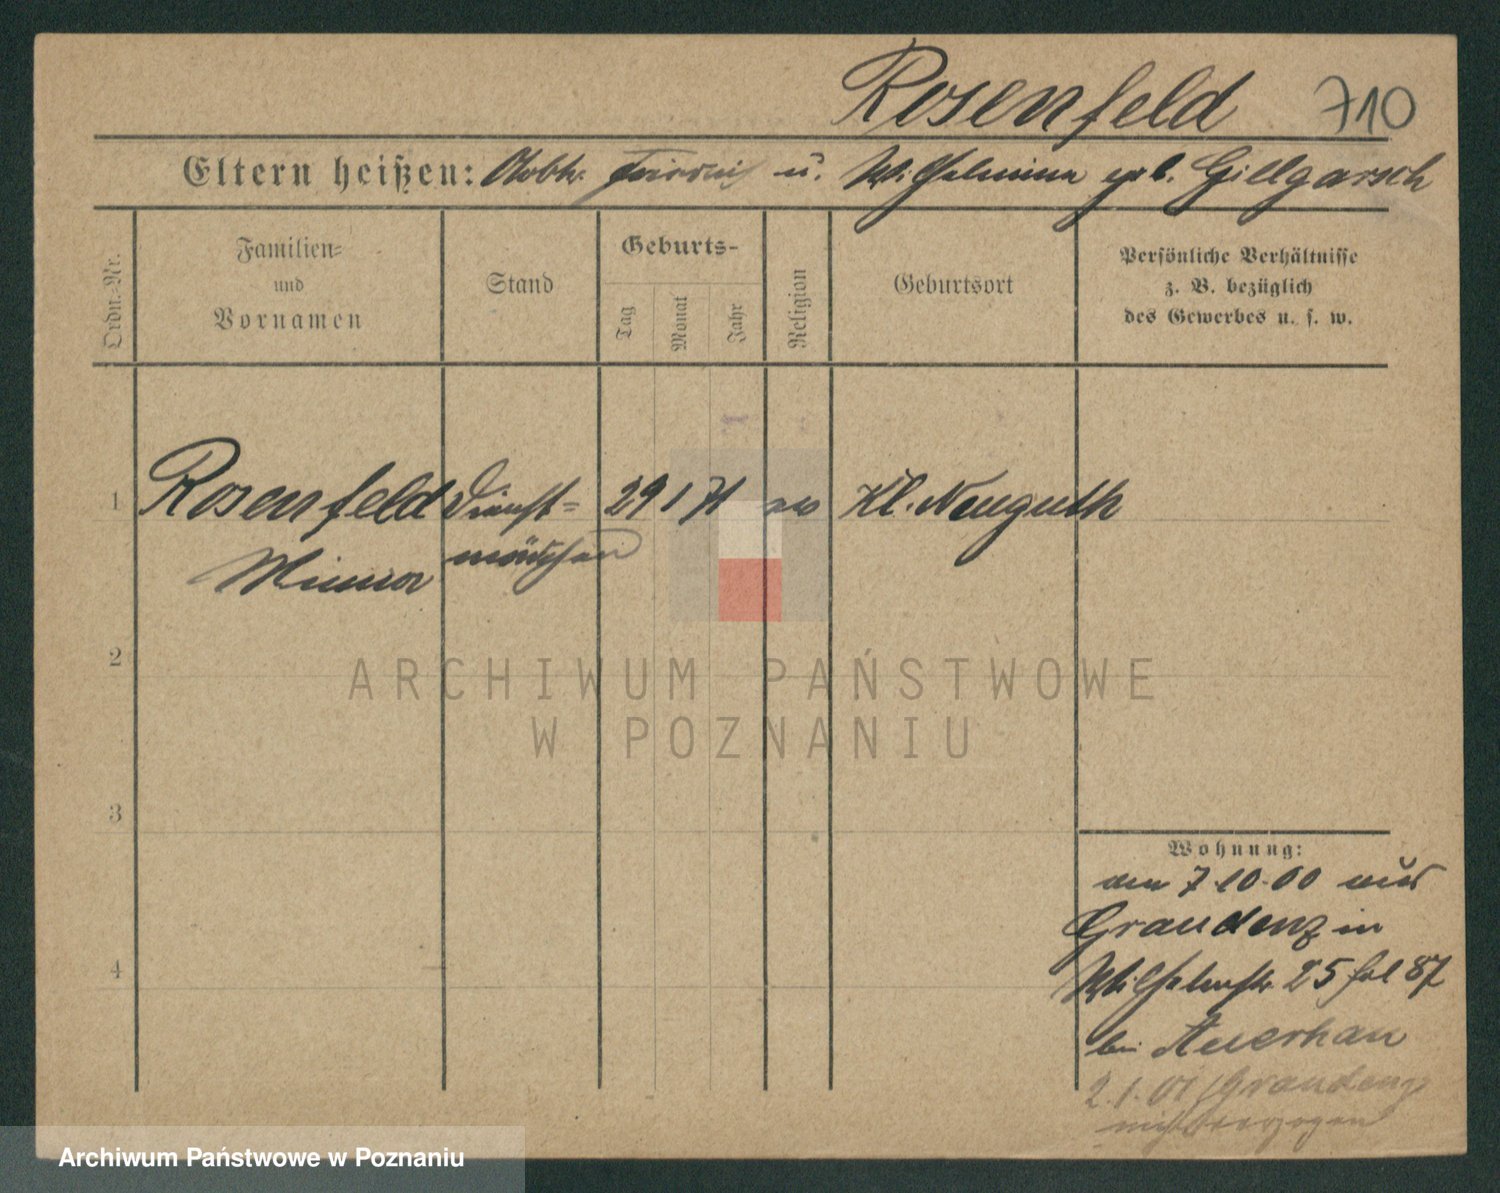 Rosenfeld 710
Eltern heißen: u. Wilhelmina geb. Gillgarsch
Ordn.-Nr.
Familien-
und
Vornamen
Stand
Geburts-
Tag
Monat
Jahr
Religion
Geburtsort
Persönliche Verhältnisse
z. B. bezüglich
des Gewerbes u. s. w.
1 Rosenfeld Dienst= 29 1 71 Kl. Neuguth
Minna mädchen
2
ARCHIWUM PAŃSTWOWE
W POZNANIU
3
4
Wohnung:
am 7.10.00 aus
Graudenz in
Wilhelmstr. 25 fol 87
bei Auerhan
2.1.01 Graudenz
verzogen
Archiwum Państwowe w Poznaniu